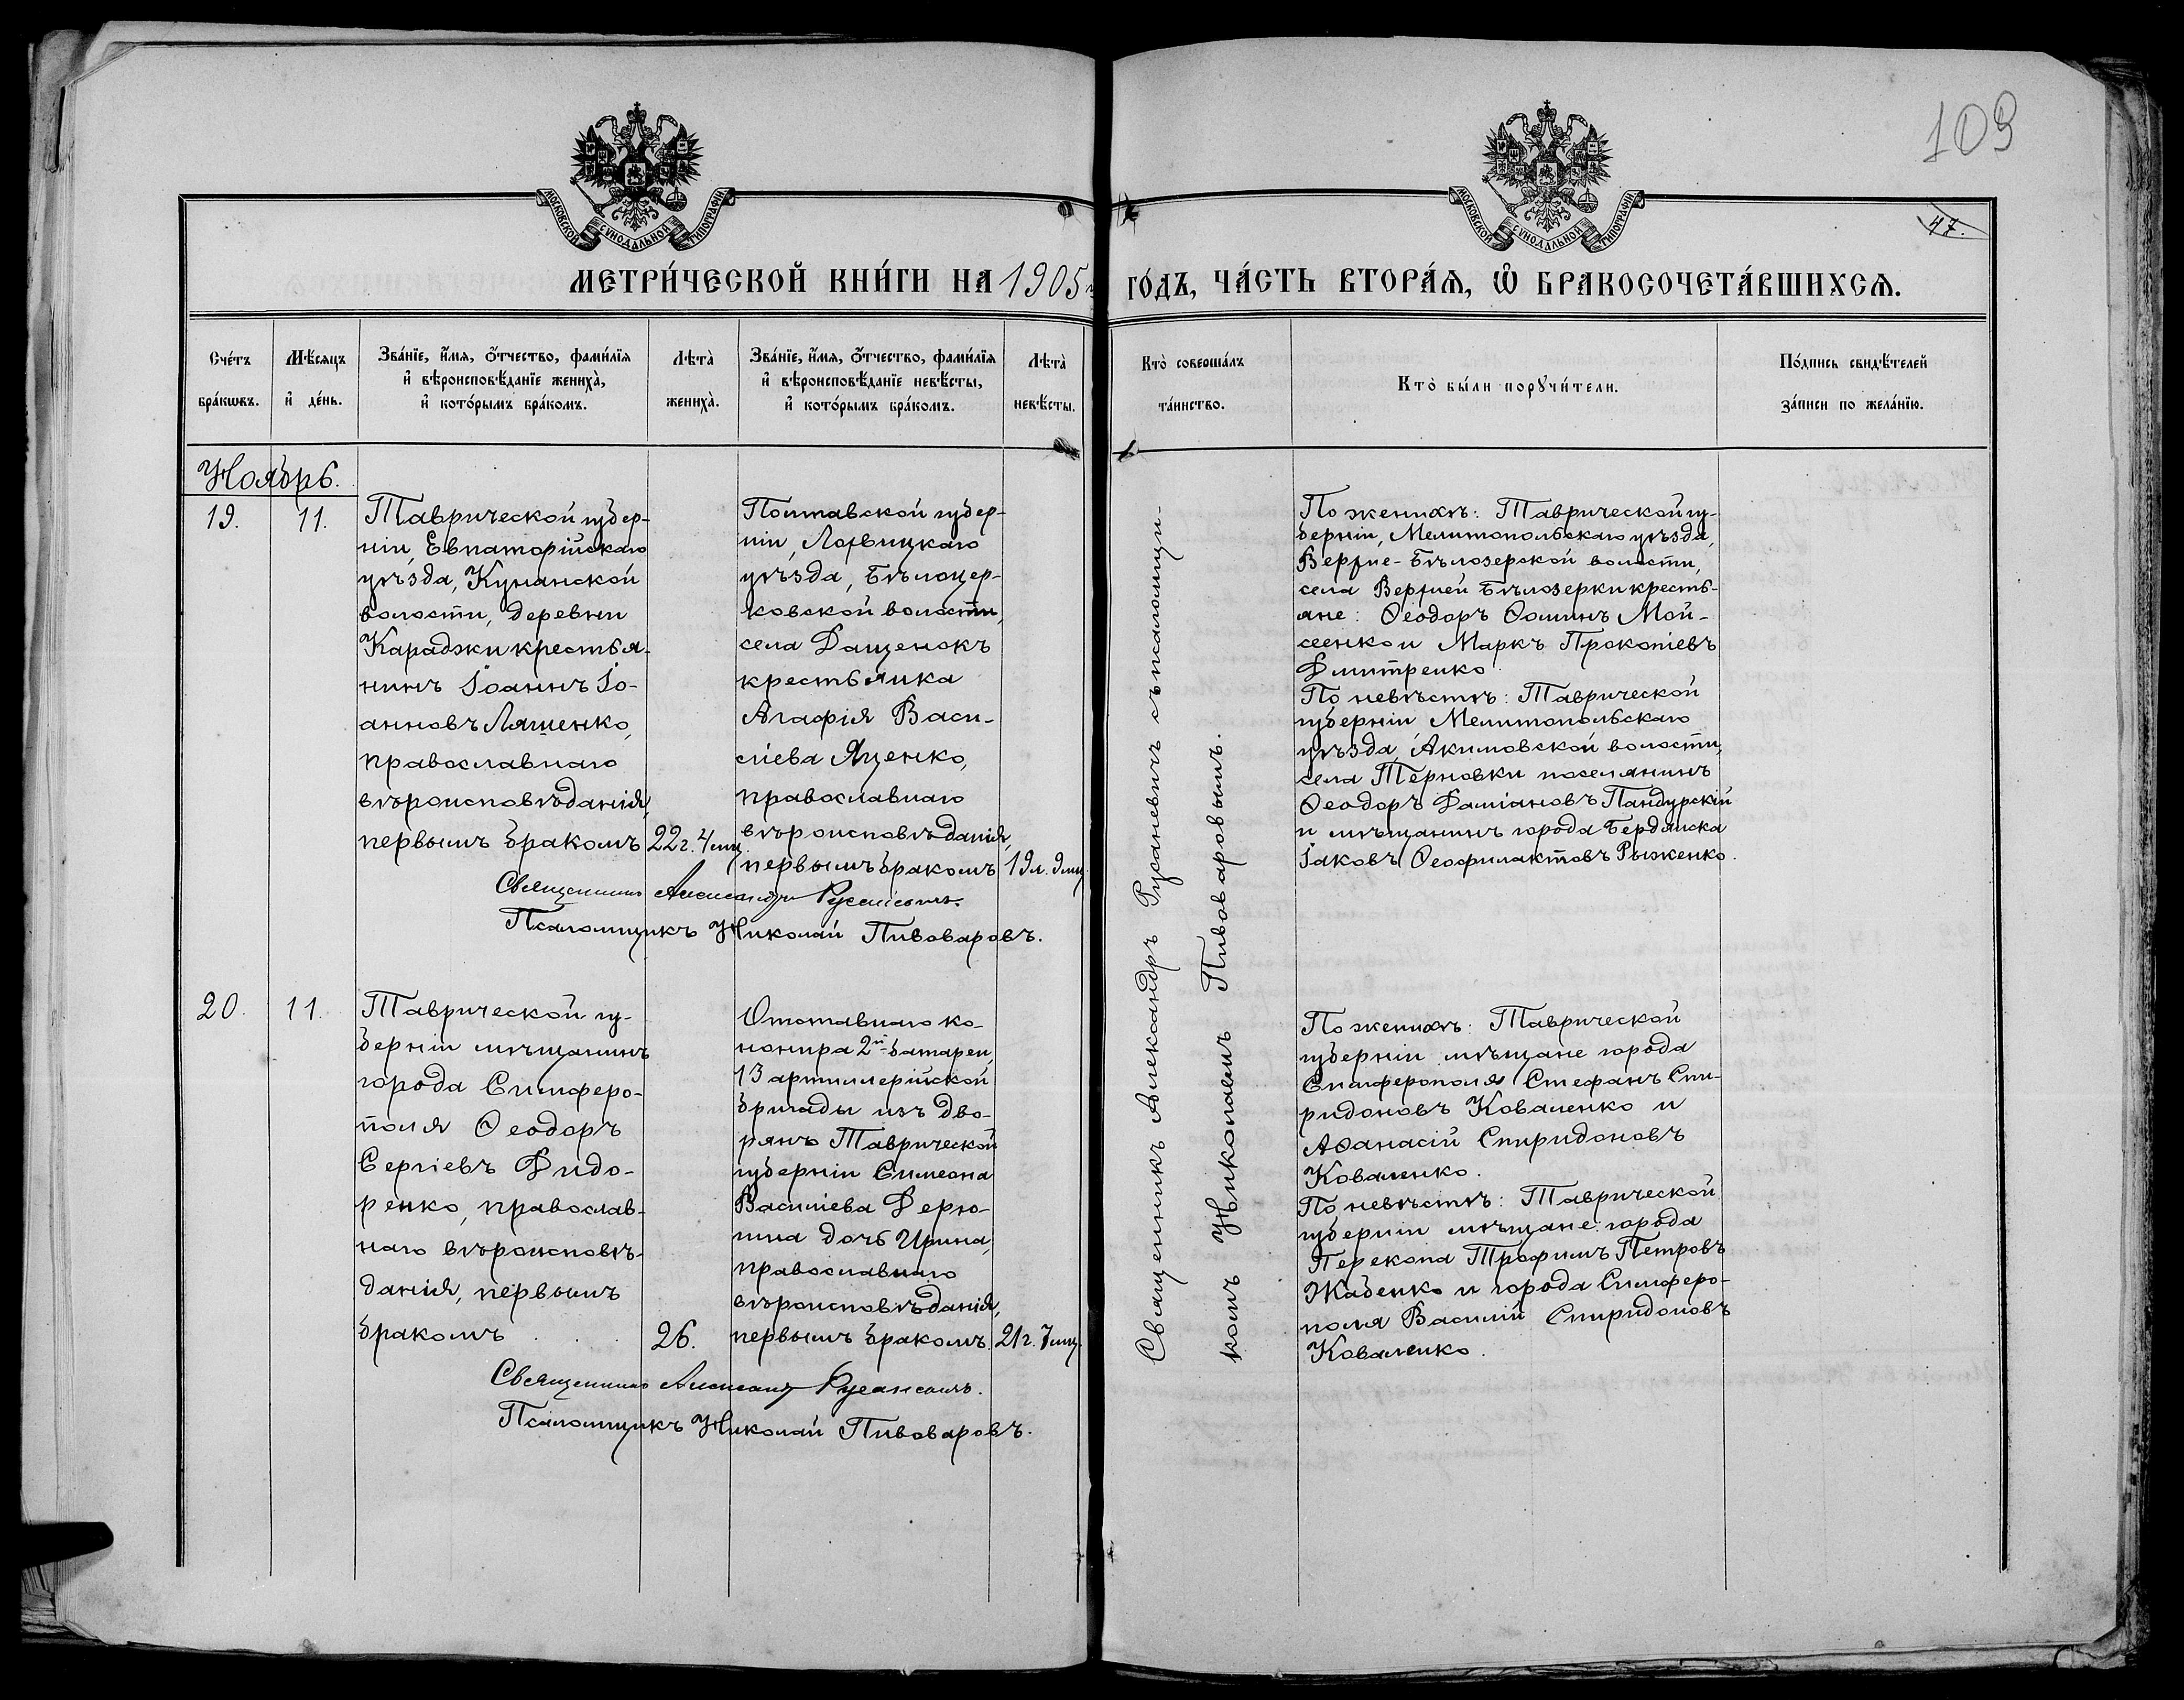 109
47.
МОСКОВСКОЙ СѴНОДАЛЬНОЙ ТИПОГРАФІИ
МОСКОВСКОЙ СѴНОДАЛЬНОЙ ТИПОГРАФІИ
МЕТРИ́ЧЕСКОЙ КНИ́ГИ НА 1905 ГО́ДЪ, ЧА́СТЬ ВТОРА́Я, Ѡ҆ БРАКОСОЧЕТА́ВШИХСЯ.
Сче́тъ
бра́кѡвъ.
Мѣ́сяцъ
и҆ де́нь.
Зва́нїе, и҆́мя, о҆́тчество, фами́лїя
и҆ вѣроисповѣ́данїе жениха̀,
и҆ кото́рымъ бра́комъ.
Лѣта̀
жениха̀.
Зва́нїе, и҆́мя, о҆́тчество, фами́лїя
и҆ вѣроисповѣ́данїе невѣ́сты,
и҆ кото́рымъ бра́комъ.
Лѣта̀
невѣ́сты.
Кто̀ соверша́лъ
та́инство.
Кто̀ бы́ли порꙋчи́тели.
По́дпись свидѣ́телей
за́писи по жела́нїю.
Ноябрь.
19.
11.
Таврической губер-
ніи, Евпаторійскаго
уѣзда, Кунанской
волости, деревни
Караджи крестья-
нинъ Іоаннъ Іо-
анновъ Ляшенко,
православнаго
вѣроисповѣданія,
первымъ бракомъ
22 г. 4 мц.
Полтавской губер-
ніи, Лохвицкаго
уѣзда, Бѣлоцер-
ковской волости,
села Дащенокъ
крестьянка
Агафія Васи-
ліева Яценко,
православнаго
вѣроисповѣданія,
первымъ бракомъ
19 л. 9 мц.
Священникъ Александръ Русаневичъ.
Псаломщикъ Николай Пивоваровъ.
Священникъ Александръ Русаневичъ съ псаломщи-
комъ Николаемъ Пивоваровымъ.
По женихѣ: Таврической гу-
берніи, Мелитопольскаго уѣзда,
Верхне-Бѣлозерской волости,
села Верхней Бѣлозерки кресть-
яне: Ѳеодоръ Ѳоминъ Мой-
сеенко и Маркъ Прокопіевъ
Дмитренко.
По невѣстѣ: Таврической
губерніи Мелитопольскаго
уѣзда, Акимовской волости,
села Терновки поселянинъ
Ѳеодоръ Даміановъ Пандурскій
и мѣщанинъ города Бердянска
Іаковъ Ѳеофилактовъ Рыженко.
20.
11.
Таврической гу-
берніи мѣщанинъ
города Симферо-
поля Ѳеодоръ
Сергіевъ Фидо-
ренко, православ-
наго вѣроисповѣ-
данія, первымъ
бракомъ
26.
Отставнаго ко-
нонира 2й батареи,
13 артиллерійской
бригады изъ дво-
рянъ Таврической
губерніи Симеона
Василіева Дерю-
гина дочь Ирина,
православнаго
вѣроисповѣданія,
первымъ бракомъ.
21 г. 7 мц.
Священникъ Александръ Русаневичъ.
Псаломщикъ Николай Пивоваровъ.
По женихѣ: Таврической
губерніи мѣщане города
Симферополя Стефанъ Спи-
ридоновъ Коваленко и
Аѳанасій Спиридоновъ
Коваленко.
По невѣстѣ: Таврической
губерніи мѣщане города
Перекопа Трофимъ Петровъ
Жабенко и города Симферо-
поля Василій Спиридоновъ
Коваленко.